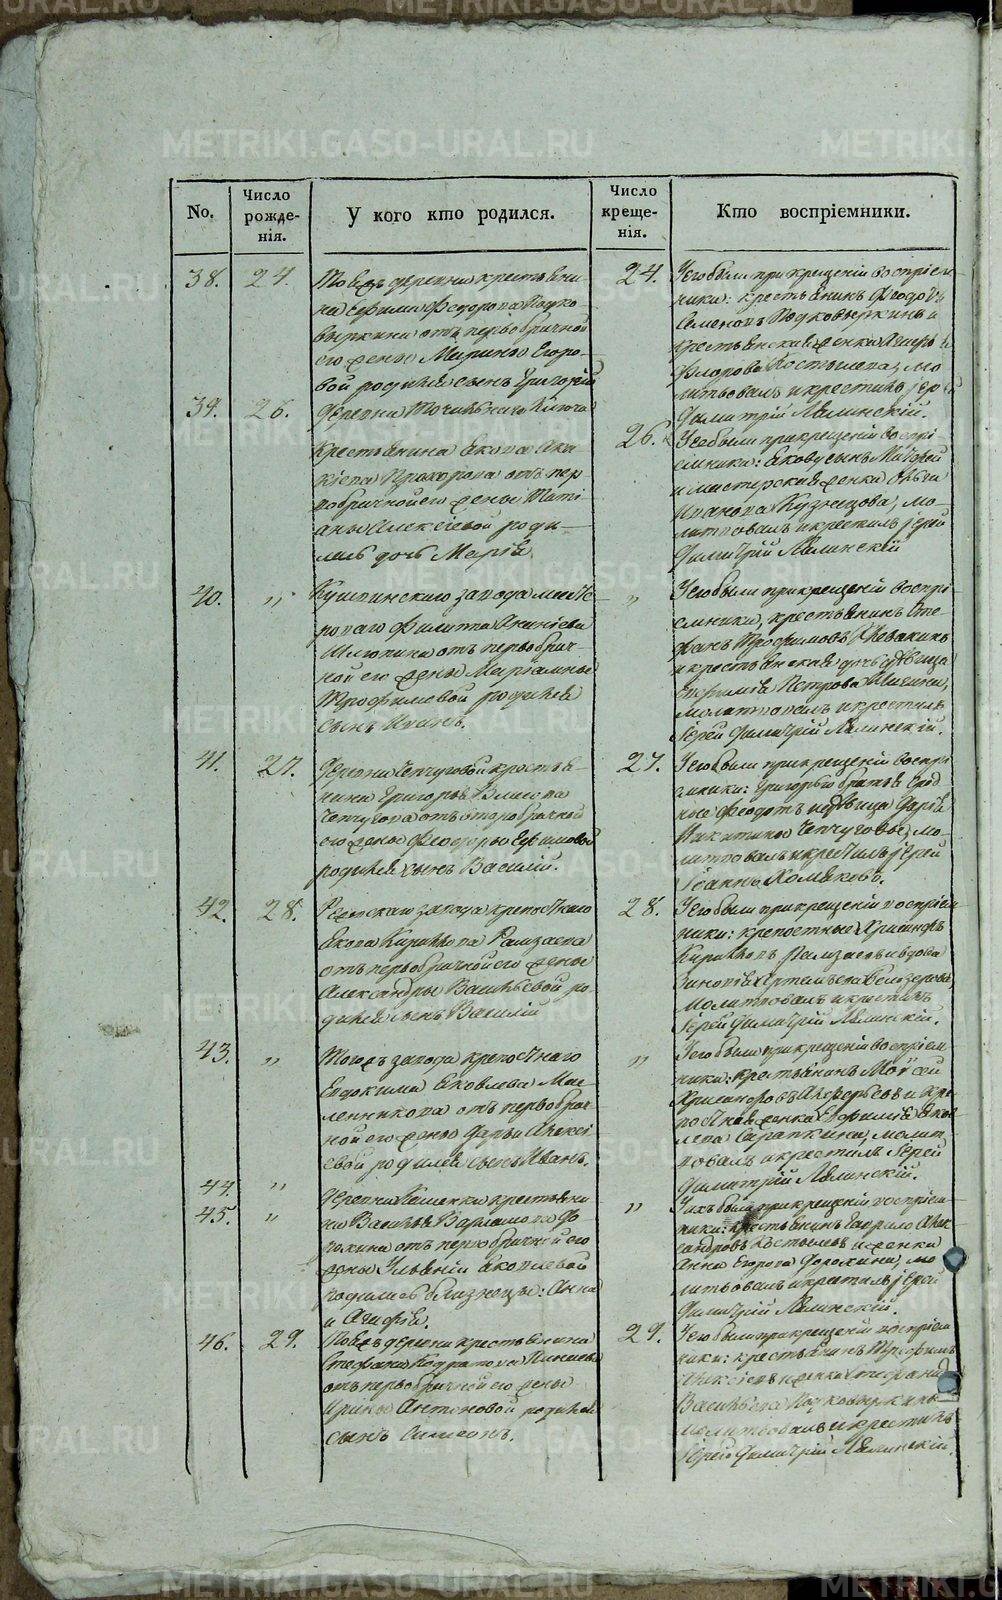 No.
Число рожде-нія.
У кого кто родился.
Число креще-нія.
Кто воспріемники.
38.
24.
Тоежъ деревни крестьяни-
на Ефима Федорова Подко
выркина отъ первобрачной
его жены Марины Егоро-
вой родился сынъ Григорій
24.
У его были при крещеніи воспріем-
ники: крестьянинъ Феодоръ
Семеновъ Подковыркинъ и
крестьянская женка
Флорова Костылева, мо-
литвовалъ и крестилъ іерей
Димитрій Лялинскій.
39.
26.
Деревни Ключа
крестьянина Якова Ака
кіева Прохорова отъ пер
вобрачной его жены Тати-
аны Алексіевой роди-
лась дочь Марія
26.
У ее были при крещеніи воспрі
емники: сынъ Матфей
и мастерская женка
Иванова Кузнецова, мо-
литвовалъ и крестилъ іерей
Димитрій Лялинскій
40.
"
Кушвинскаго завода масте
роваго Филиппа Ананіева
отъ первобрач-
ной его жены Маріамны
Трофимовой родился
сынъ
"
У его были при крещеніи воспрі
емники, крестьянинъ Сте-
фанъ Трофимовъ
и крестьянская дочь дѣвица
Евфимія Петрова
молитвовалъ и крестилъ
іерей Димитрій Лялинскій.
41.
27.
Деревни Чепчуговой крестья-
нина Григорья Власова
Чепчугова отъ второбрачной
его жены Феодоры Ефимовой
родился сынъ Василій.
27.
У его были при крещеніи воспрі
емники: Григорья братья
Феодотъ и дѣвица Дарія
Никитины Чепчуговы, мо-
литвовалъ и крестилъ іерей
Іоаннъ Хомяковъ.
42.
28.
завода крепостнаго
Якова Кирилова Рамзаева
отъ первобрачной его жены
Александры Васильевой ро
дился сынъ Василій
28.
У его были при крещеніи воспріем
ники: крепостные Хрисанфъ
Кириловъ Рамзаевъ и вдова
Зиновія Артемьева Белозерова,
молитвовалъ и крестилъ
іерей Димитрій Лялинскій.
43.
"
Тогожъ завода крепостнаго
Евдокима Яковлева Мас-
ленникова отъ первобрач-
ной его жены Дарьи Алексі
евой родился сынъ Иванъ.
"
У его были при крещеніи воспріем-
ники: крестьянинъ Мойсей
Хрисанфовъ и кре
постная женка Ефимія Яков
лева Сарапкина, молит
вовалъ и крестилъ іерей
Димитрій Лялинскій.
44.
"
45.
"
Деревни Каменки крестьяни
на Василья Варламова До
рохина отъ первобрачной его
жены Ульяніи Яковлевой
родились близнецы: Анна
и Агафія.
"
У ихъ были при крещеніи воспріем
ники: крестьянинъ Гаврило Алек
сандровъ Костылевъ и женка
Анна Егорова Дорохина, мо
литвовалъ и крестилъ іерей
Димитрій Лялинскій.
46.
29.
Тоежъ деревни крестьянина
Стефана Кодратова
отъ первобрачной его жены
Ирины Антоновой родился
сынъ Симеонъ.
29.
У его были при крещеніи воспріем
ники: крестьянинъ Трофимъ
Алексіевъ и женка Стефанида
Васильева Подковыркины
молитвовалъ и крестилъ
іерей Димитрій Лялинскій.
METRIKI.GASO-URAL.RU